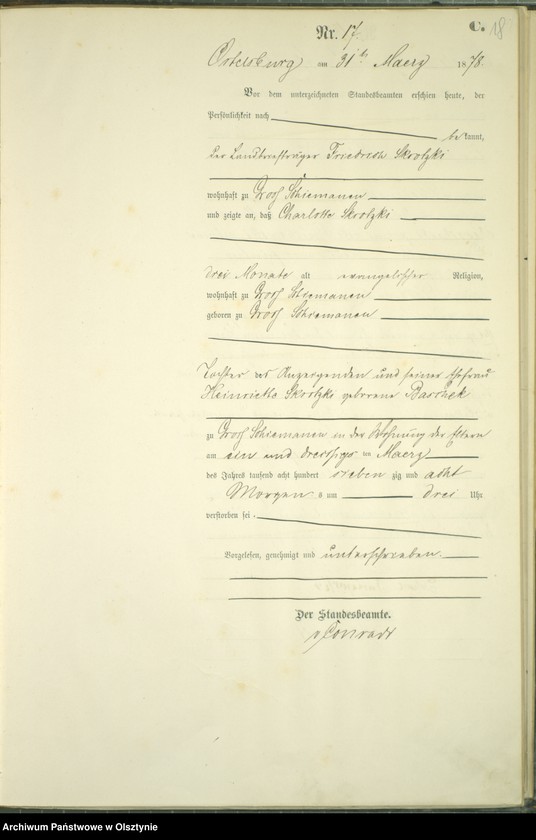 C. 18
Nr. 17.
Ortelsburg am 31ten Maerz 1878.
Vor dem unterzeichneten Standesbeamten erschien heute, der
Persönlichkeit nach
bekannt,
der Landbriefträger Friedrich Skrotzki
wohnhaft zu Gross Schiemanen
und zeigte an, daß Charlotte Skrotzki
drei Monate alt evangelischer Religion,
wohnhaft zu Gross Schiemanen
geboren zu Gross Schiemanen
Tochter des Anzeigenden und seiner Ehefrau
Heinriette Skrotzki geborene
zu Gross Schiemanen in der Wohnung der Eltern
am ein und dreissigsten Maerz
des Jahres tausend acht hundert siebenzig und acht
Morgens um drei Uhr
verstorben sei.
Vorgelesen, genehmigt und unterschrieben.
Der Standesbeamte.
vConradt
Archiwum Państwowe w Olsztynie